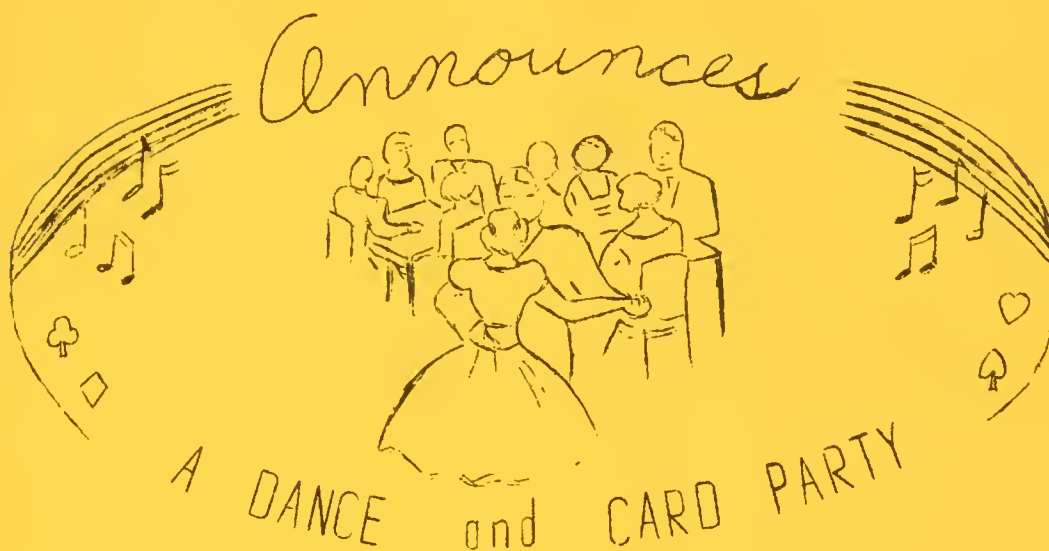 Announces
A DANCE and CARD PARTY